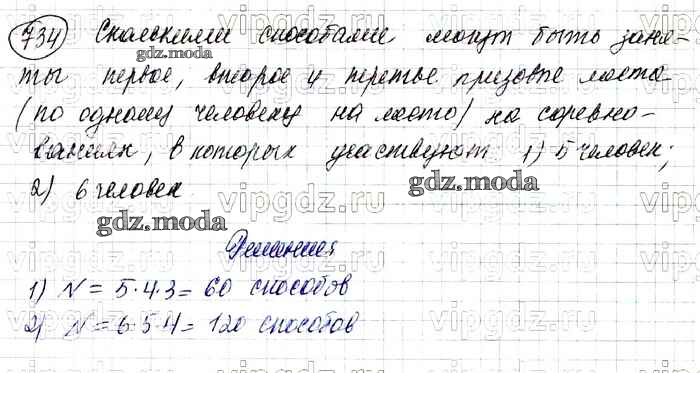 734 Сколькими способами могут быть заня-
gdz.moda
ты первое, второе и третье призовые места
(по одному человеку на место) на соревно-
ваниях, в которых участвуют 1) 5 человек;
2) 6 человек
gdz.moda
gdz.moda
Решение
1) N = 5·4·3 = 60 способов
2) N = 6·5·4 = 120 способов
vipgdz.ru